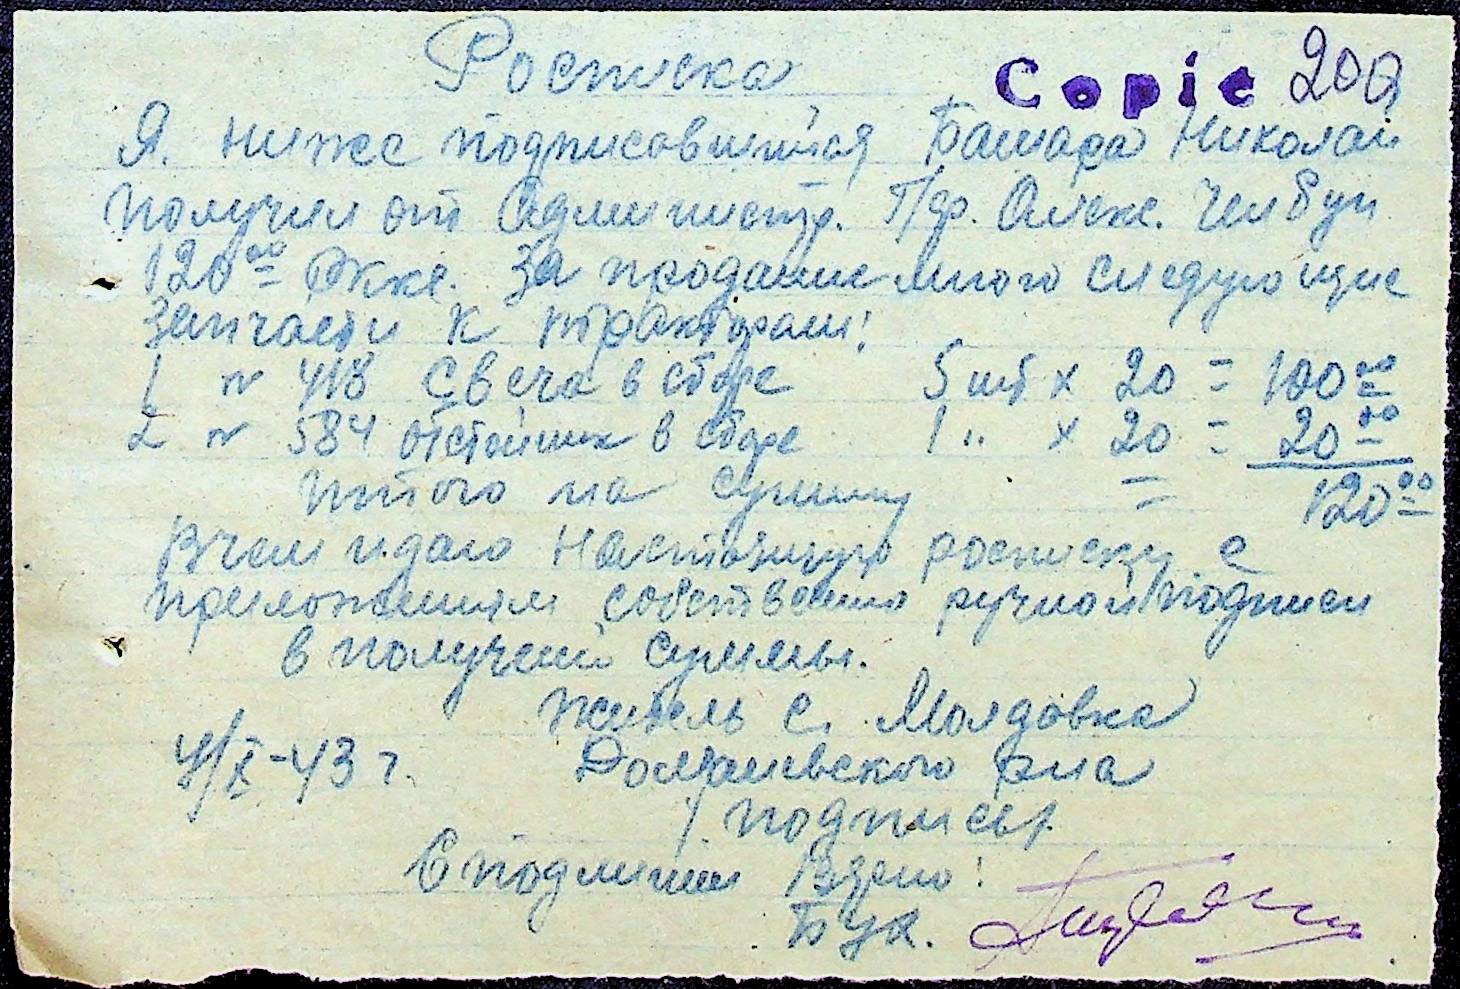 Росписка
Copie 200
Я. ниже подписавшийся Башара Николай
получил от Администр. Г/ф. Алекс. Челбул
120 00 Ркке. За продание мною следующие
запчасти к тракторам:
1 № 418 Свеча в сборе 5 шт x 20 = 100 00
2 № 584 отстойник в сборе 1 " x 20 = 20 00
Итого на сумму = 120 00
В чем и даю настоящую росписку с
приложением собственно ручной подписи
в получений суммы.
житель с. Молдовка
4/X-43 г. Доманевского р-на
/подпись/
С подлиным Верно:
Бух.